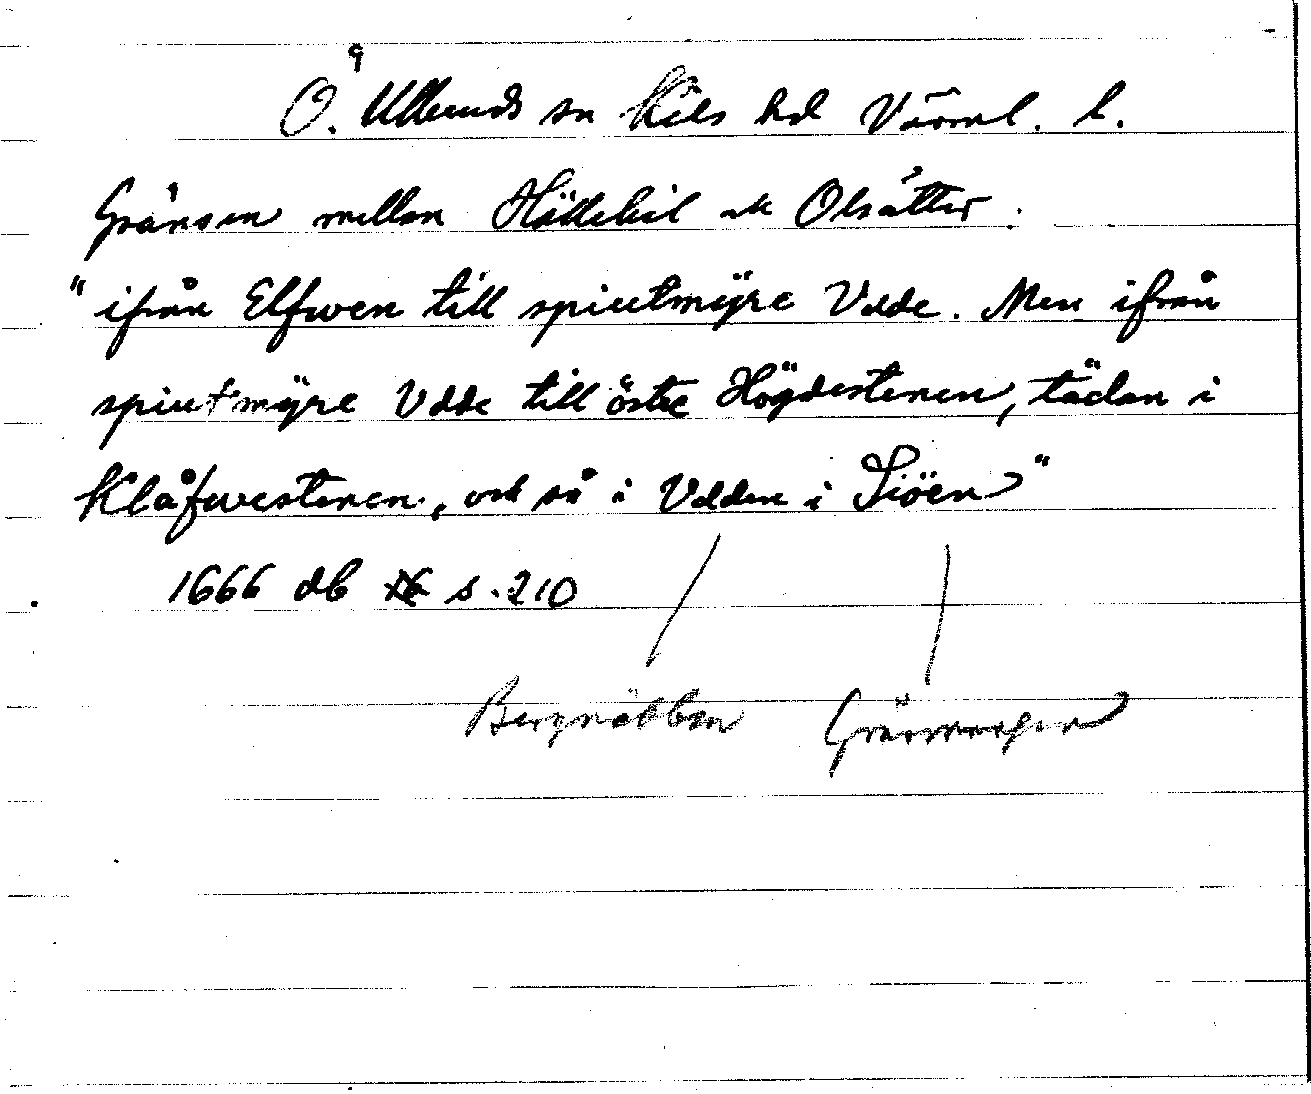 9
Ö. Ulleruds sn Kils hd Värml. l.
Gränsen mellan Hällekil ok Olsätter.
"ifrån Elfwen till spiutmÿre Udde. Men ifrån
spiutmÿre Udde till östre Högdestenen, tädan i
Klåfwestenen, och så i Udden i Siöen"
1666 db s. 210
Bergnäbben Gränsvasen